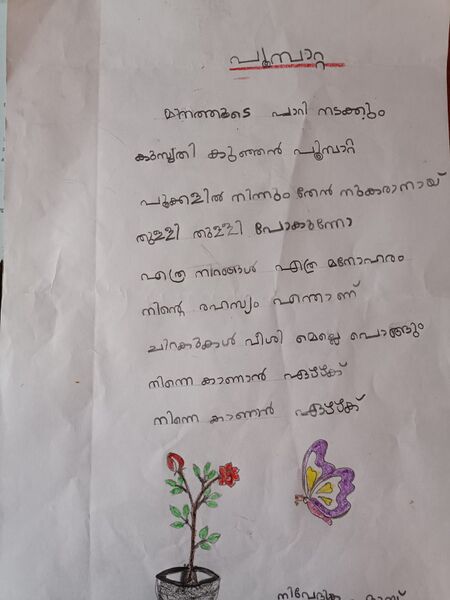 പൂമ്പാറ്റ
മാനത്തൂടെ പാറി നടക്കും
കുസൃതി കുഞ്ഞൻ പൂമ്പാറ്റ
പൂക്കളിൽ നിന്നും തേൻ നുകരാനായ്
തുള്ളി തുള്ളി പോകുന്നോ
എത്ര നിറങ്ങൾ എത്ര മനോഹരം
നിന്റെ രഹസ്യം എന്താണ്
ചിറകുകൾ വീശി മെല്ലെ പൊങ്ങും
നിന്നെ കാണാൻ ഏഴഴക്
നിന്നെ കാണാൻ ഏഴഴക്